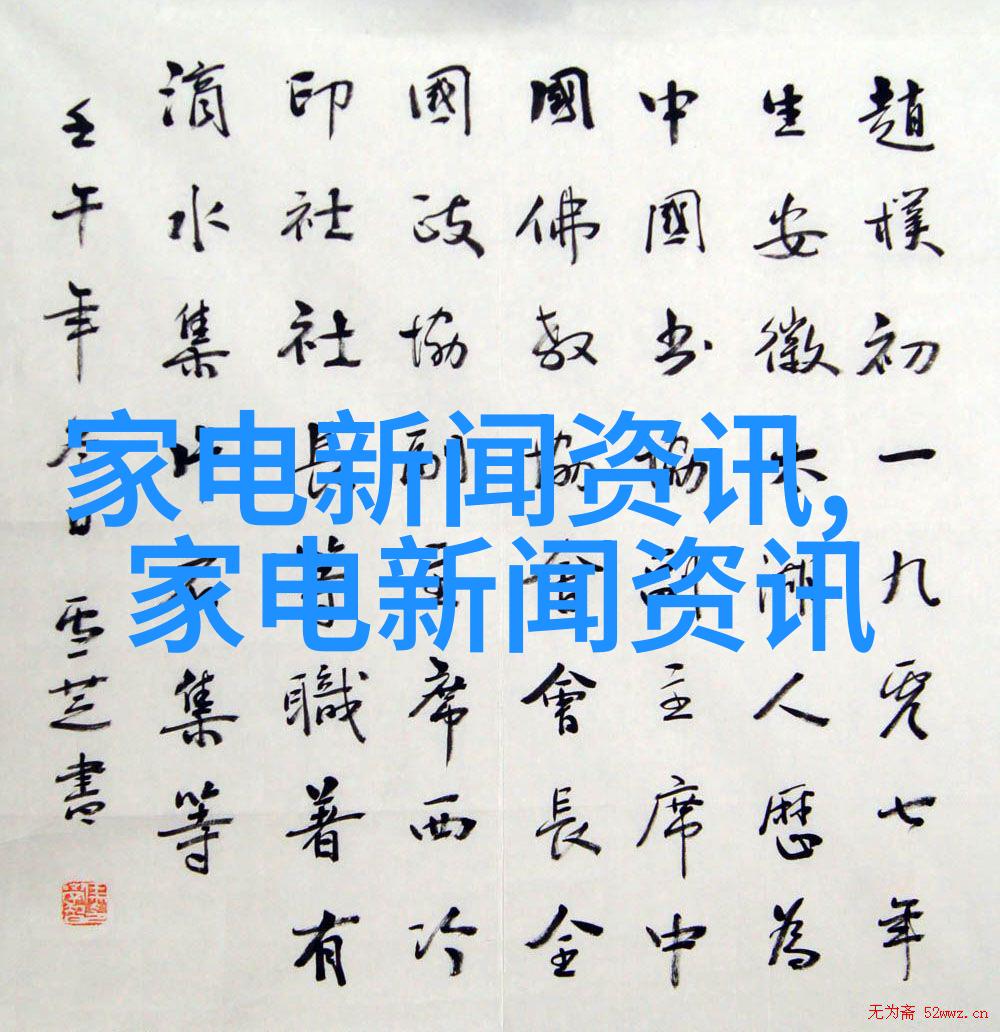 趙樸初一九零七年
生安徽太湖人歷為
中國書協副主席中
國佛教協會會長全
國政協副主席西泠
印社社長等職著有
滴水集片石集等
壬午年春日雪芝書
家电新闻资讯,
家电新闻资讯
无为斋 52wwz.cn